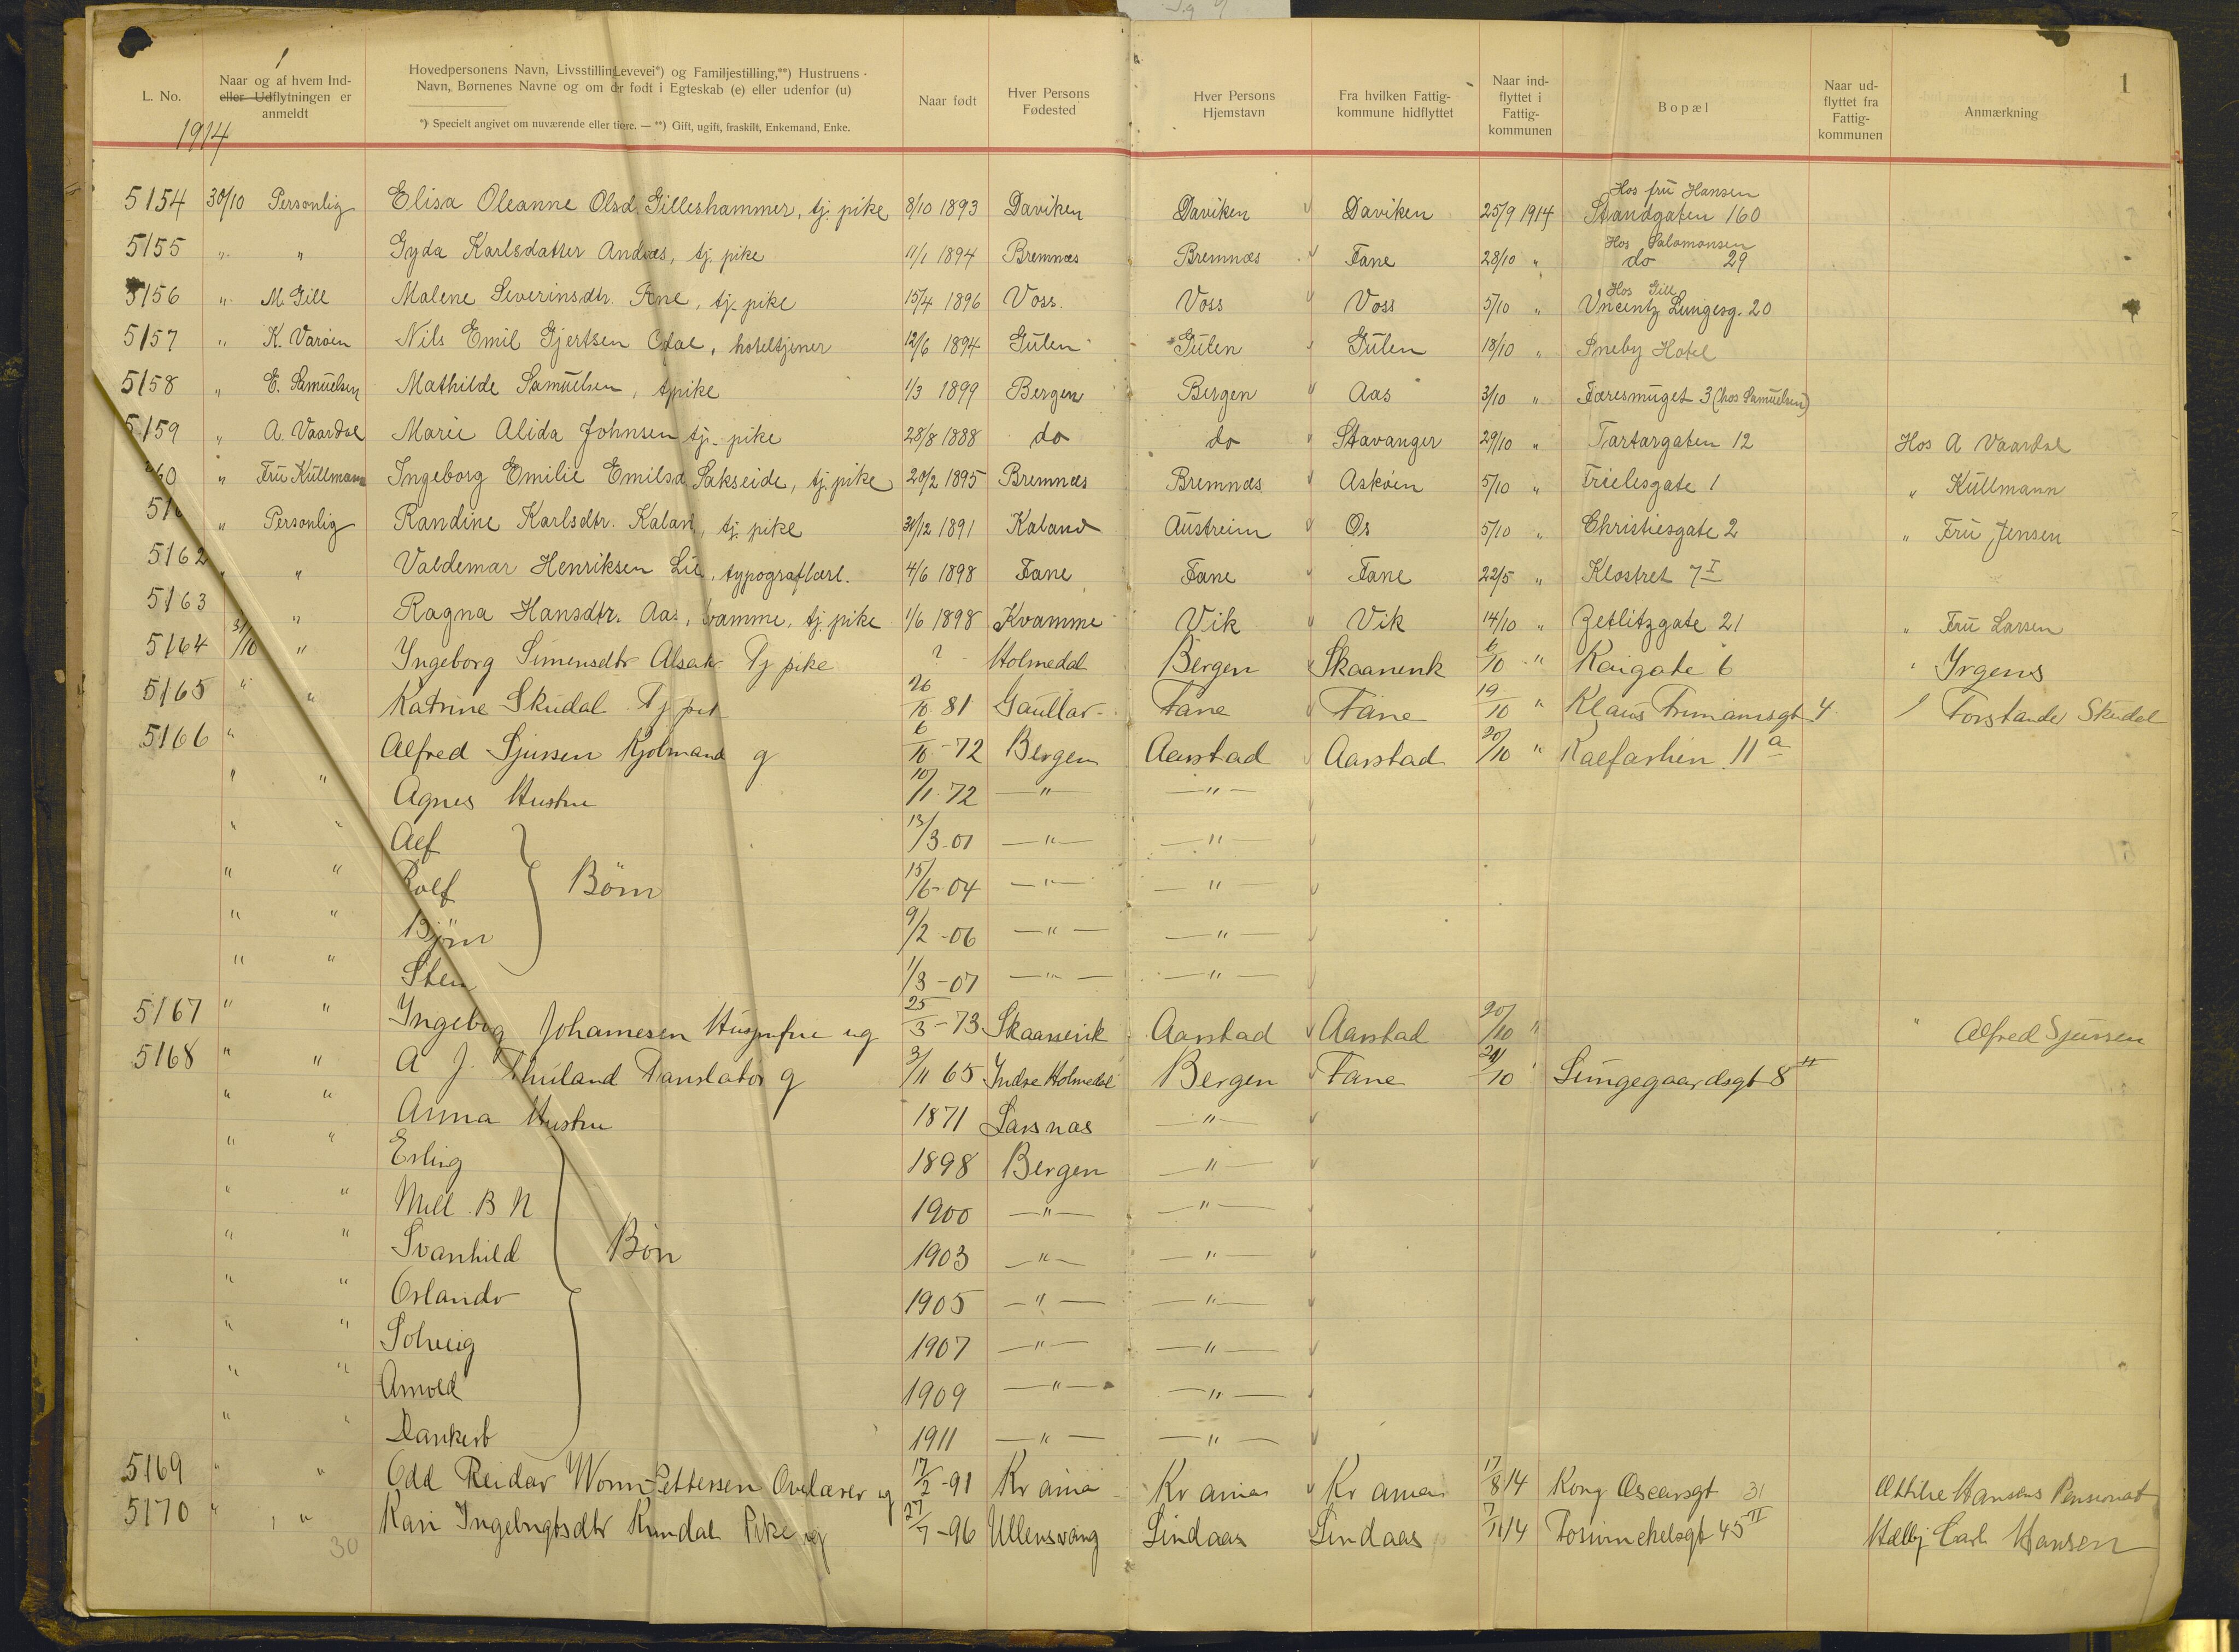 1
L. No.
Naar og af hvem Ind- eller Udflytningen er anmeldt
Hovedpersonens Navn, Livsstilling Levevei*) og Familjestilling,**) Hustruens Navn, Børnenes Navne og om de født i Egteskab (e) eller udenfor (u)
*) Specielt angivet om nuværende eller tidligere. — **) Gift, ugift, fraskilt, Enkemand, Enke.
Naar født
Hver Persons Fødested
Hver Persons Hjemstavn
Fra hvilken Fattig- kommune hidflyttet
Naar ind- flyttet i Fattig- kommunen
Bopæl
Naar ud- flyttet fra Fattig- kommunen
Anmærkning
1
1914
5154 30/10 Personlig Elisa Oleanne Olsd. Gilleshammer, tj. pike 8/10 1893 Daviken Daviken Daviken 25/9 1914 Hos fru Hansen Strandgaten 160
5155 " " Gyda Karlsdatter Andnæs, tj. pike 11/1 1894 Bremnæs Bremnæs Fane 28/10 " Hos Salomonsen do 29
5156 " M. Gill Malene Severinsdtr. Fne, tj. pike 15/4 1896 Voss Voss Voss 5/10 " Hos Gill Vncentz Lungesg. 20
5157 " K. Varøen Nils Emil Gjertsen, hoteltjener 12/6 1894 Gulen Gulen Gulen 18/10 " Sneby Hotel
5158 " E. Samuelsen Mathilde Samuelsen, tjpike 1/3 1899 Bergen Bergen Aas 3/10 " Færesmuget 3 (hos Samuelsen)
5159 " A. Vaardal Marie Alida Johnsen tj. pike 28/8 1888 do do Stavanger 29/10 " Tartargaten 12 Hos A Vaardal
60 " Fru Kullmann Ingeborg Emilie Emilsd. Sakseide, tj. pike 20/2 1895 Bremnæs Bremnæs Askøen 5/10 " Frielesgate 1 " Kullmann
516 " Personlig Randine Karlsdtr. Kaland, tj. pike 31/12 1891 Kaland Austreim Os 5/10 " Christiesgate 2 " Fru Jensen
5162 " " Valdemar Henriksen Lie, typograflærl. 4/6 1898 Fane Fane Fane 22/5 " Klostret 7 I
5163 " Ragna Hansdtr. Aas, vamme, tj. pike 1/6 1898 Kvamme Vik Vik 14/10 " Zetlitzgate 21 " Fru Larsen
5164 31/10 " Ingeborg Simensdtr Alsaker Tj pike ? Holmedal Bergen Skaanevik 6/10 " Kaigate 6 " Irgens
5165 " " Katrine Skudal Tj pik 26/10 81 Gaullar Fane Fane 19/10 " Klaus Frimannsgt 4 Forstander Skudal
5166 " Alfred Sjursen Kjølmand g 6/10 -72 Bergen Aarstad Aarstad 20/10 " Kalfarlien 11 a
" " Agnes Hustru 10/1 72 — " — — " —
" " Alf 13/3 -01 — " — — " —
" " Rolf Børn 15/6 -04 — " — — " —
" " Bjørn 9/2 -06 — " — — " —
" " Sten 1/3 -07 — " — — " —
5167 " " Ingeborg Johannesen Husjomfru ug 25/3 -73 Skaanevik Aarstad Aarstad 20/10 " " Alfred Sjursen
5168 " " A J. Thuland Translatør g 3/11 65 Indre Holmedal Bergen Fane 24/10 " Lungegaardsgt 8 II
" " Anna Hustru 1871 Larsnes — " —
" " Erling 1898 Bergen — " —
" " Mill. B N 1900 — " — — " —
" " Svanhild Børn 1903 — " — — " —
" " Orlando 1905 — " — — " —
" " Solveig 1907 — " — — " —
" " Arnold 1909 — " — — " —
" " Dankert 1911 — " — — " —
5169 " " Odd Reidar Worm-Pettersen ug 17/2 -91 Kr ania Kr ania Kr ania 17/8 14 Kong Oscarsgt 31 Ottilie Hansens Pensionat
5170 " " Kari Ingebrigtsdtr Rundal Pike ug 27/7 -96 Ullensvang Lindaas Lindaas 7/11 14 Forvinckelsgt 45 II Hdlbj Carl Hansen
30